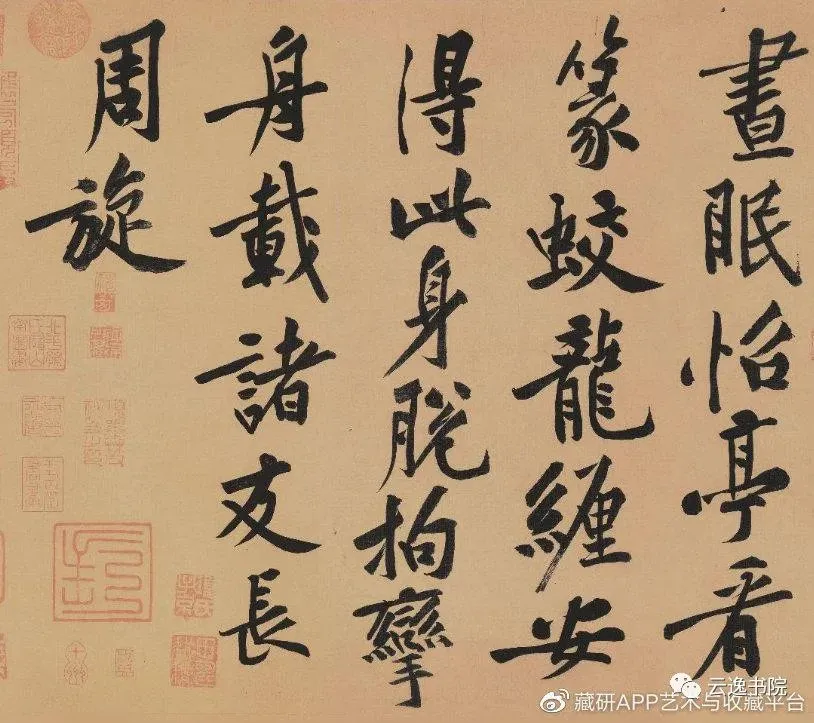 晝眠怡亭看
篆蛟龍纏安
得此身脫拘攣
舟載諸友長
周旋
云逸书院
@藏研APP艺术与收藏平台